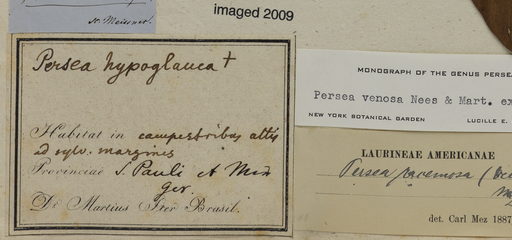 imaged 2009
H. Meissner.
Persea hypoglauca +
Habitat in campestribus altis
ad sylv. margines
Provinciae S. Pauli et Min
Ger.
De Martius Iter Brasil.
MONOGRAPH OF THE GENUS PERSE
Persea venosa Nees & Mart. ex
NEW YORK BOTANICAL GARDEN LUCILLE E.
LAURINEAE AMERICANAE
Persea racemosa (
det. Carl Mez 1887